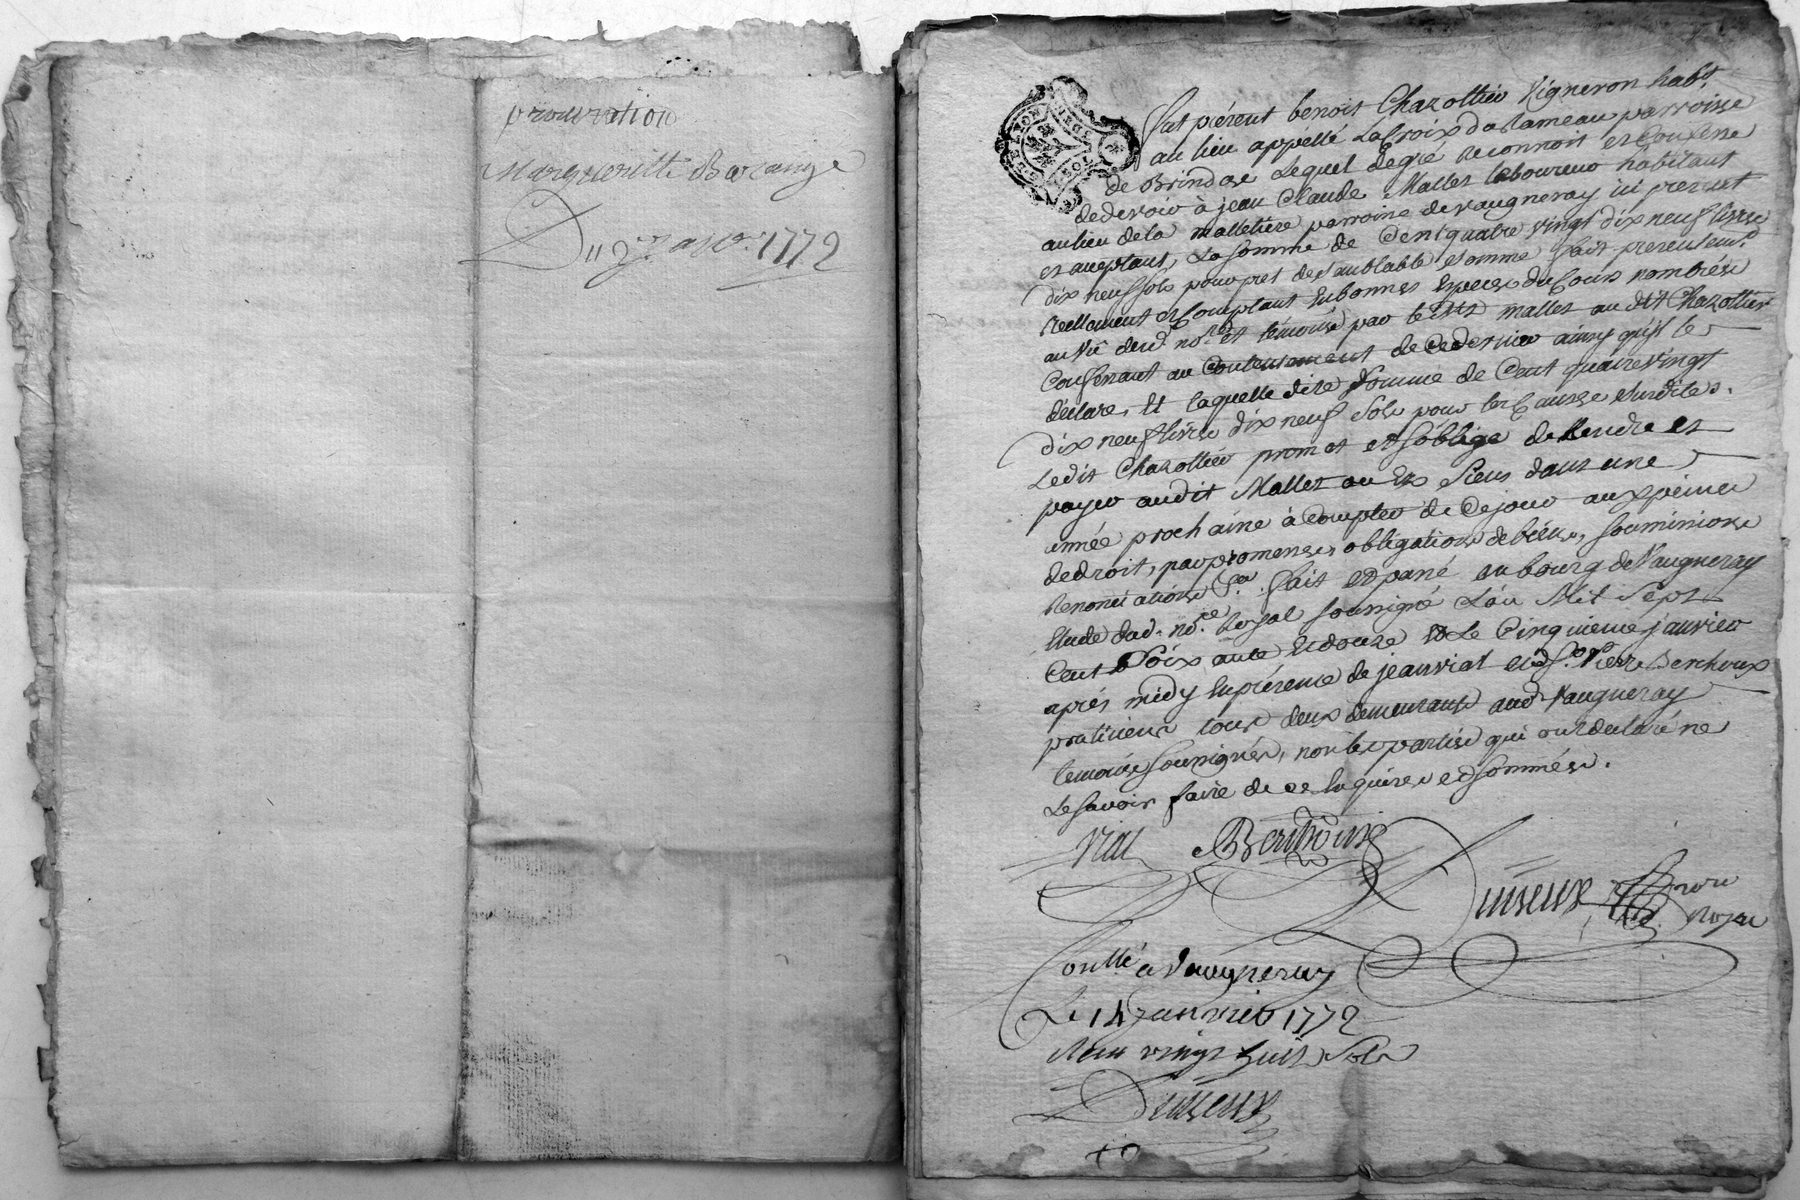 procuration
Margueritte Barange
Du 2e avr. 1772
fut présent benoit Chazottier Vigneron habt.
au lieu appellé La Croix du Rameau parroisse
de Brindas Lequel de gré Reconnoit et Confesse
de devoir à jean Claude Mallet laboureur habitant
au lieu de la malletiere parroisse de vaugneray ici present
et aceptant, La somme de Cent quatre vingt dix neuf livres
dix neuf sols pour pret de semblable somme fait presentemt.
réellement et Comptant En bonnes Especes du Cours nombrées
au Vû dud. nore. et témoins par le dit mallet au dit Chazottier
Confessant au Contentement de Ce dernier ainsy qu'il le
déclare, Et laquelle dite somme de Cent quatre vingt
dix neuf livres dix neuf sols pour les Causes Susdites.
Ledit Chazottier promet et s'oblige de Rendre et
payer audit Mallet ou Es Siens dans une
année prochaine à Compter de Ce jour aux peines
de droit, par promesses, obligations de biens, soumissions
Renonciations &a. fait et passé au bourg de Vaugneray
Etude dud. nore. Royal soussigné L'an Mil Sept
Cent Soixante Et douze Et Le Cinquieme janvier
aprés midy En présence de jean viat et Sr. Pierre Berthoux
praticiens tous deux demeurants aud. Vaugneray
temoins soussignés, non les parties qui ont declaré ne
Le savoir faire de ce Enquises et sommées.
Viat Berthoux
nore
Royal
Conllé a Vaugneray
Le 14 Janvier 1772
Reçu vingt huit Sols